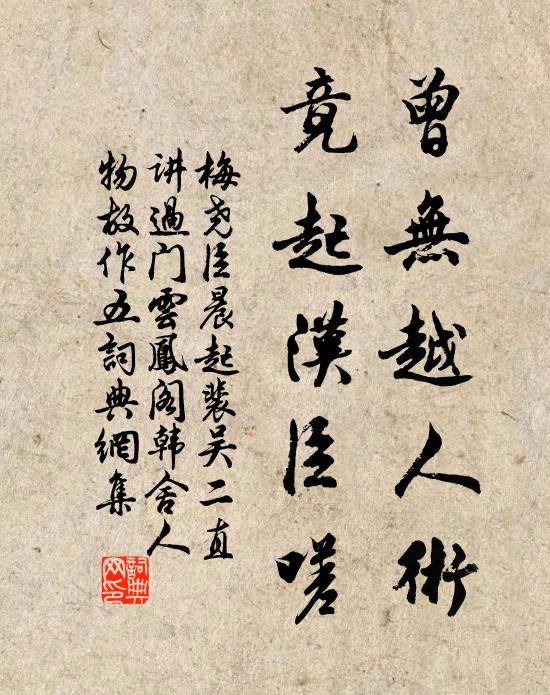 曾無越人術
竟起漢臣嗟
梅尧臣晨起裴吴二直
讲過门雲鳳阁韩舍人
物故作五詞典網集
詞典网印